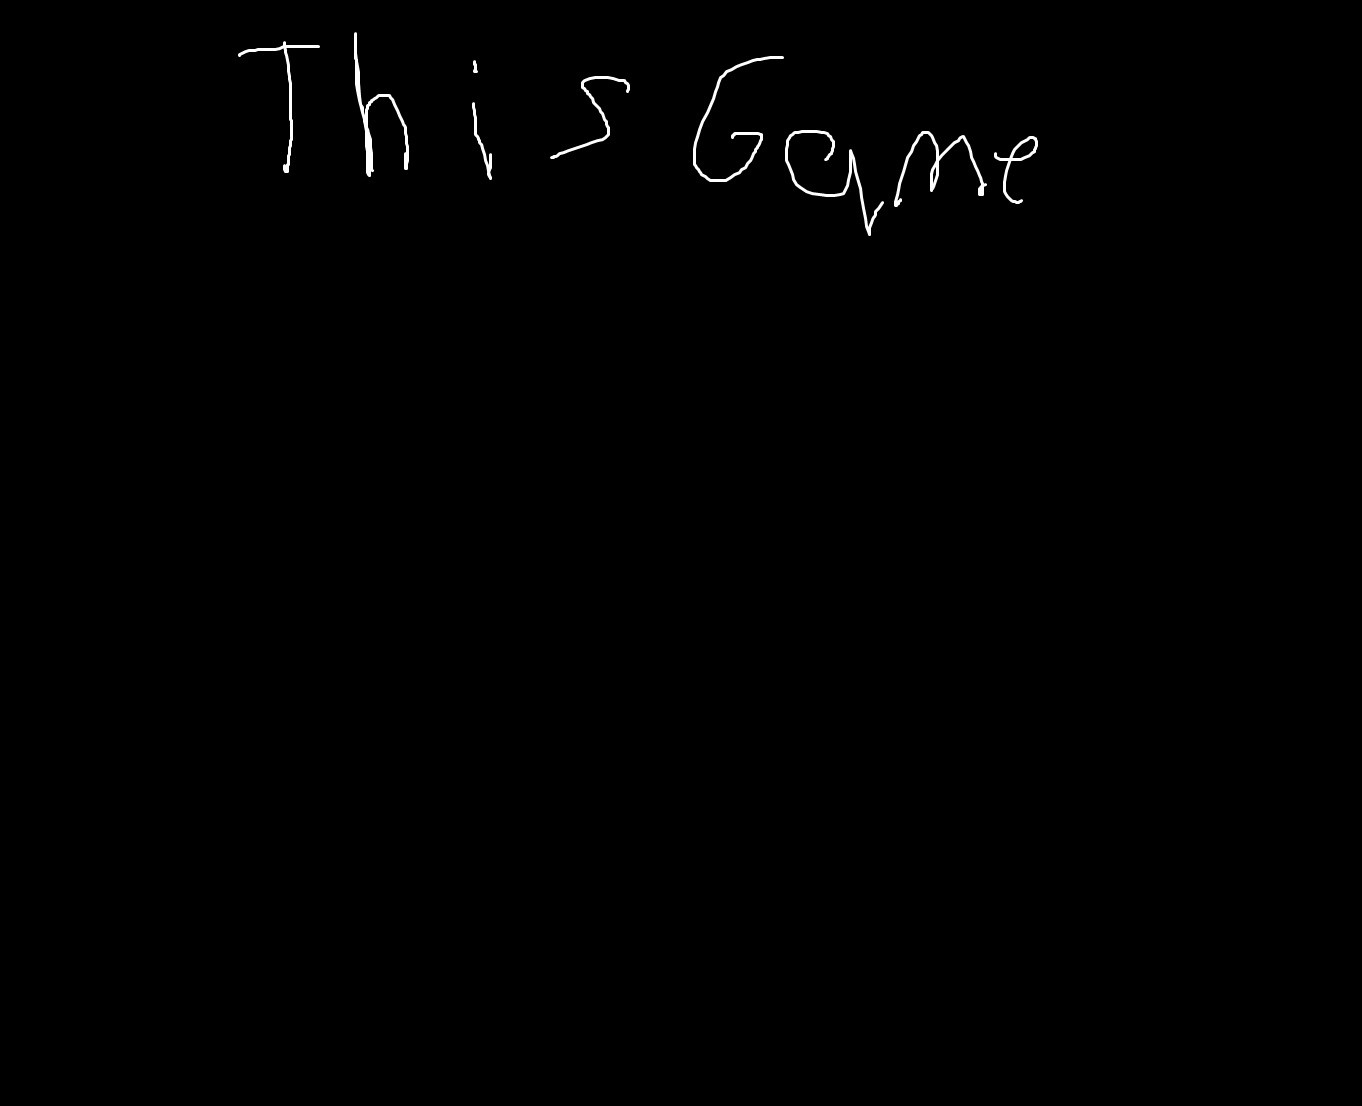 This Game